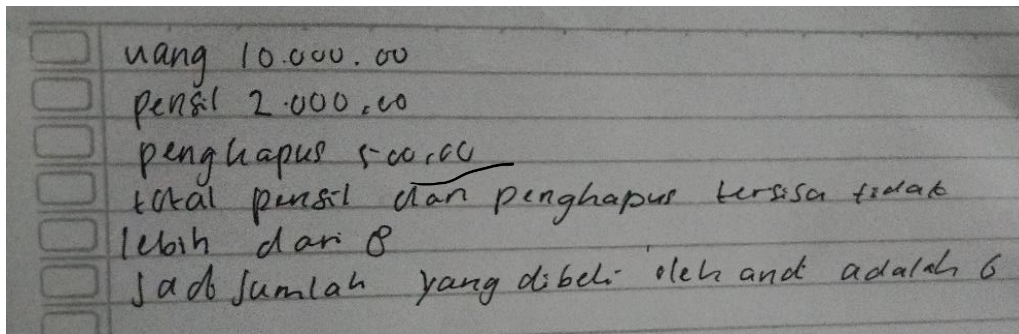 uang 10.000.00
pensil 2.000,00
penghapus 500,00
total pensil dan penghapus tersisa tidak
lebih dari 8
Jadi Jumlah yang dibeli oleh andi adalah 6